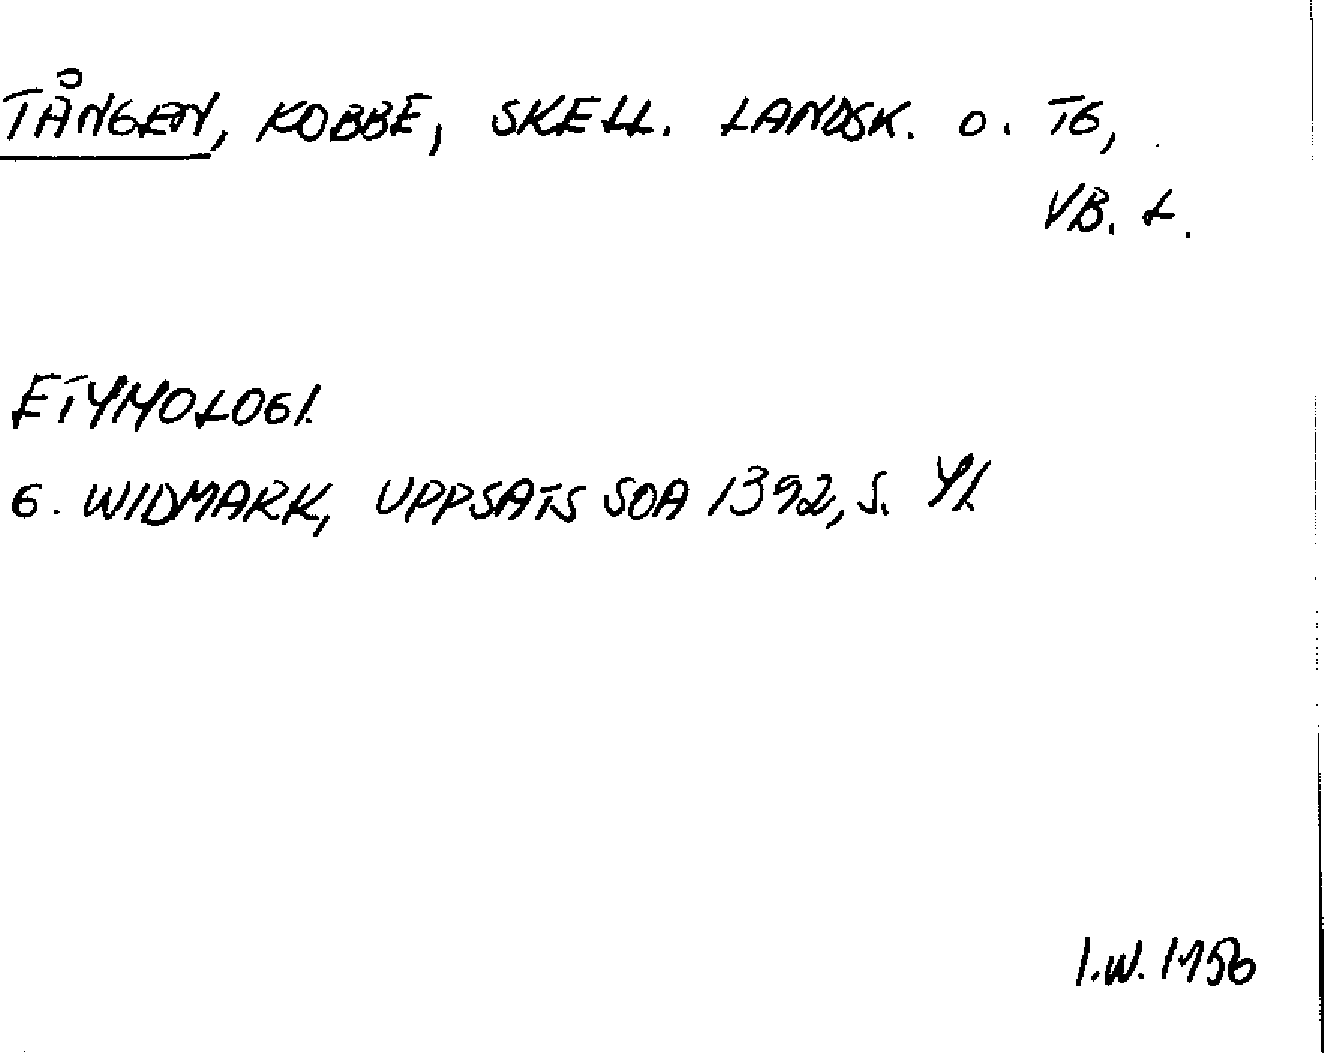 TÅNGEN, KOBBE, SKELL. LANDSK. O. TG,
VB. L.
ETYMOLOGI.
G. WIDMARK, UPPSATS SOA 1392, S.
I.W. 1956